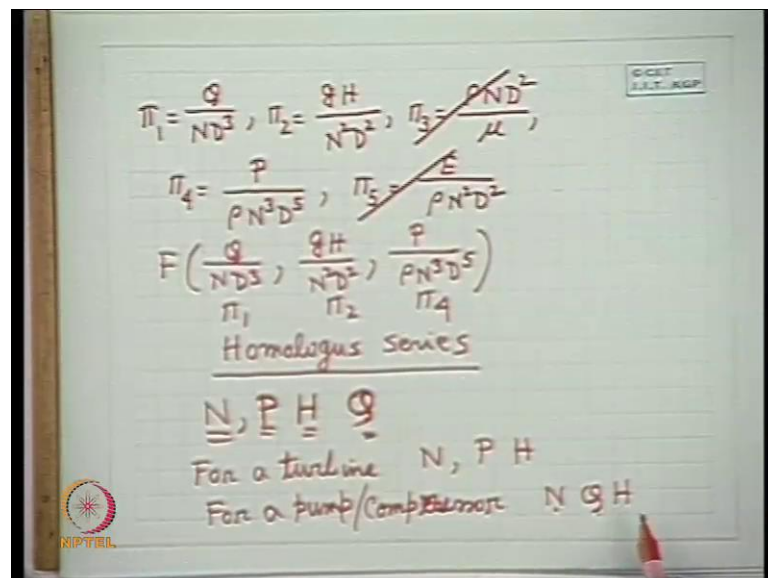 π₁ = Q/ND³, π₂ = gH/N²D², π₃ = ρND²/μ,
© CET
I.I.T. KGP
π₄ = P/ρN³D⁵, π₅ = E/ρN²D²
F(Q/ND³, gH/N²D², P/ρN³D⁵)
π₁ π₂ π₄
Homologus series
N, P H Q
For a turbine N, P H
For a pump/Compressor N Q H
NPTEL